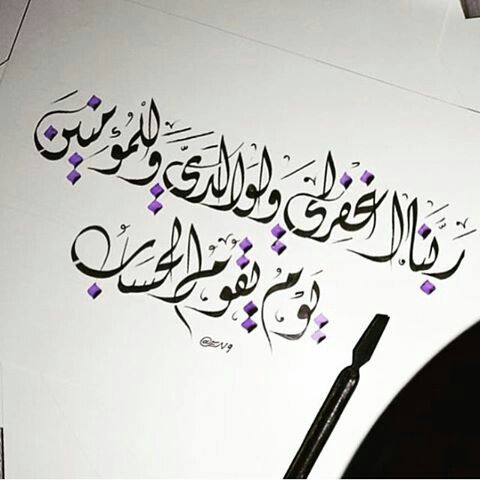 رَبَّنَا اغْفِرْ لِي وَلِوَالِدَيَّ وَلِلْمُؤْمِنِينَ
يَوْمَ يَقُومُ الْحِسَابُ